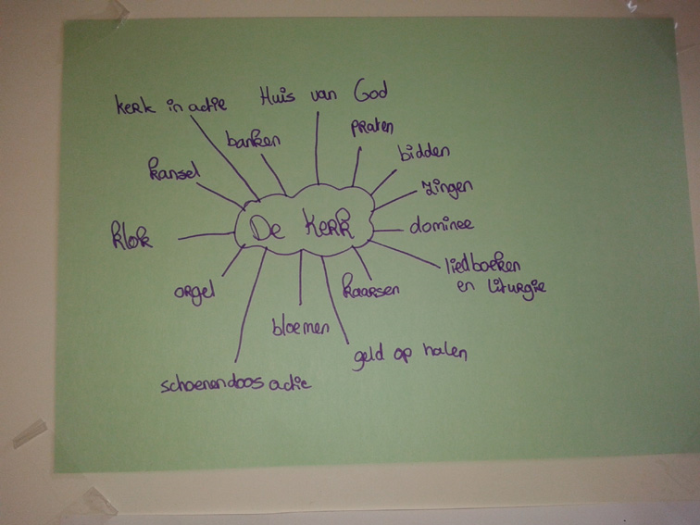 Kerk in actie
Huis van God
banken
praten
bidden
kansel
zingen
klok
De Kerk
dominee
liedboeken
en liturgie
orgel
kaarsen
bloemen
geld op halen
schoenendoos actie